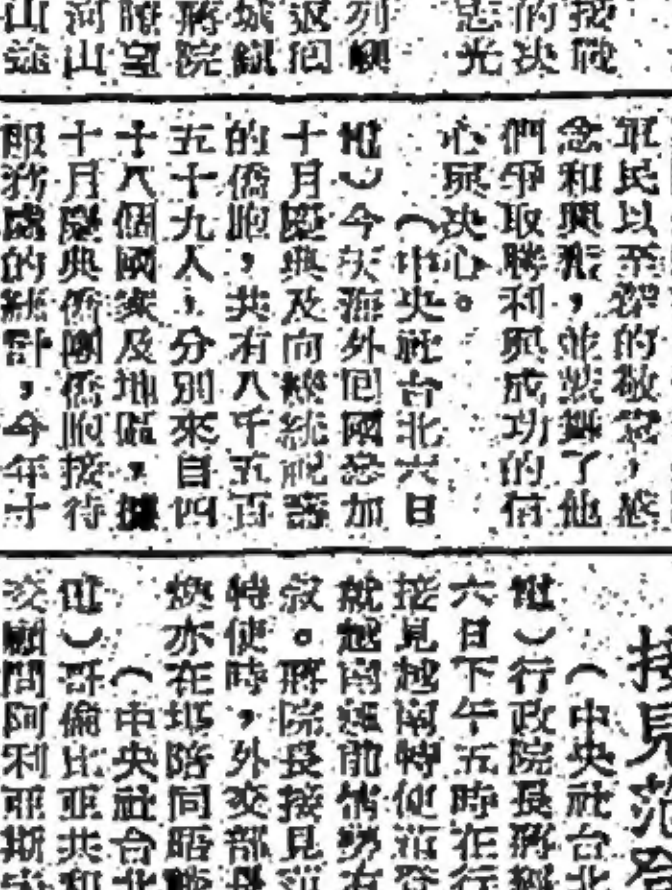 接戰
的決
志光
列嶼
返回
城鎮
蔣院
瞭望
河山
山遙
軍民以至深的敬意,
念和興奮,並鼓舞了他
們爭取勝利與成功的信
心與决心。
(中央社台北六日
電)今天海外回國參加
十月慶典及向總統祝壽
的僑胞,共有八千五百
五十九人,分別來自四
十八個國家及地區,據
十月慶典僑團僑胞接待
服務處的統計,今年十
接見范登
(中央社台北
電)行政院長蔣經
六日下午五時在行
接見越南特使范登
就越南
敍。蔣院長接見范
特使時,外交部長
煥亦在場陪同晤談
(中央社台北
電)哥倫比亞共和
交顧問阿利亞斯